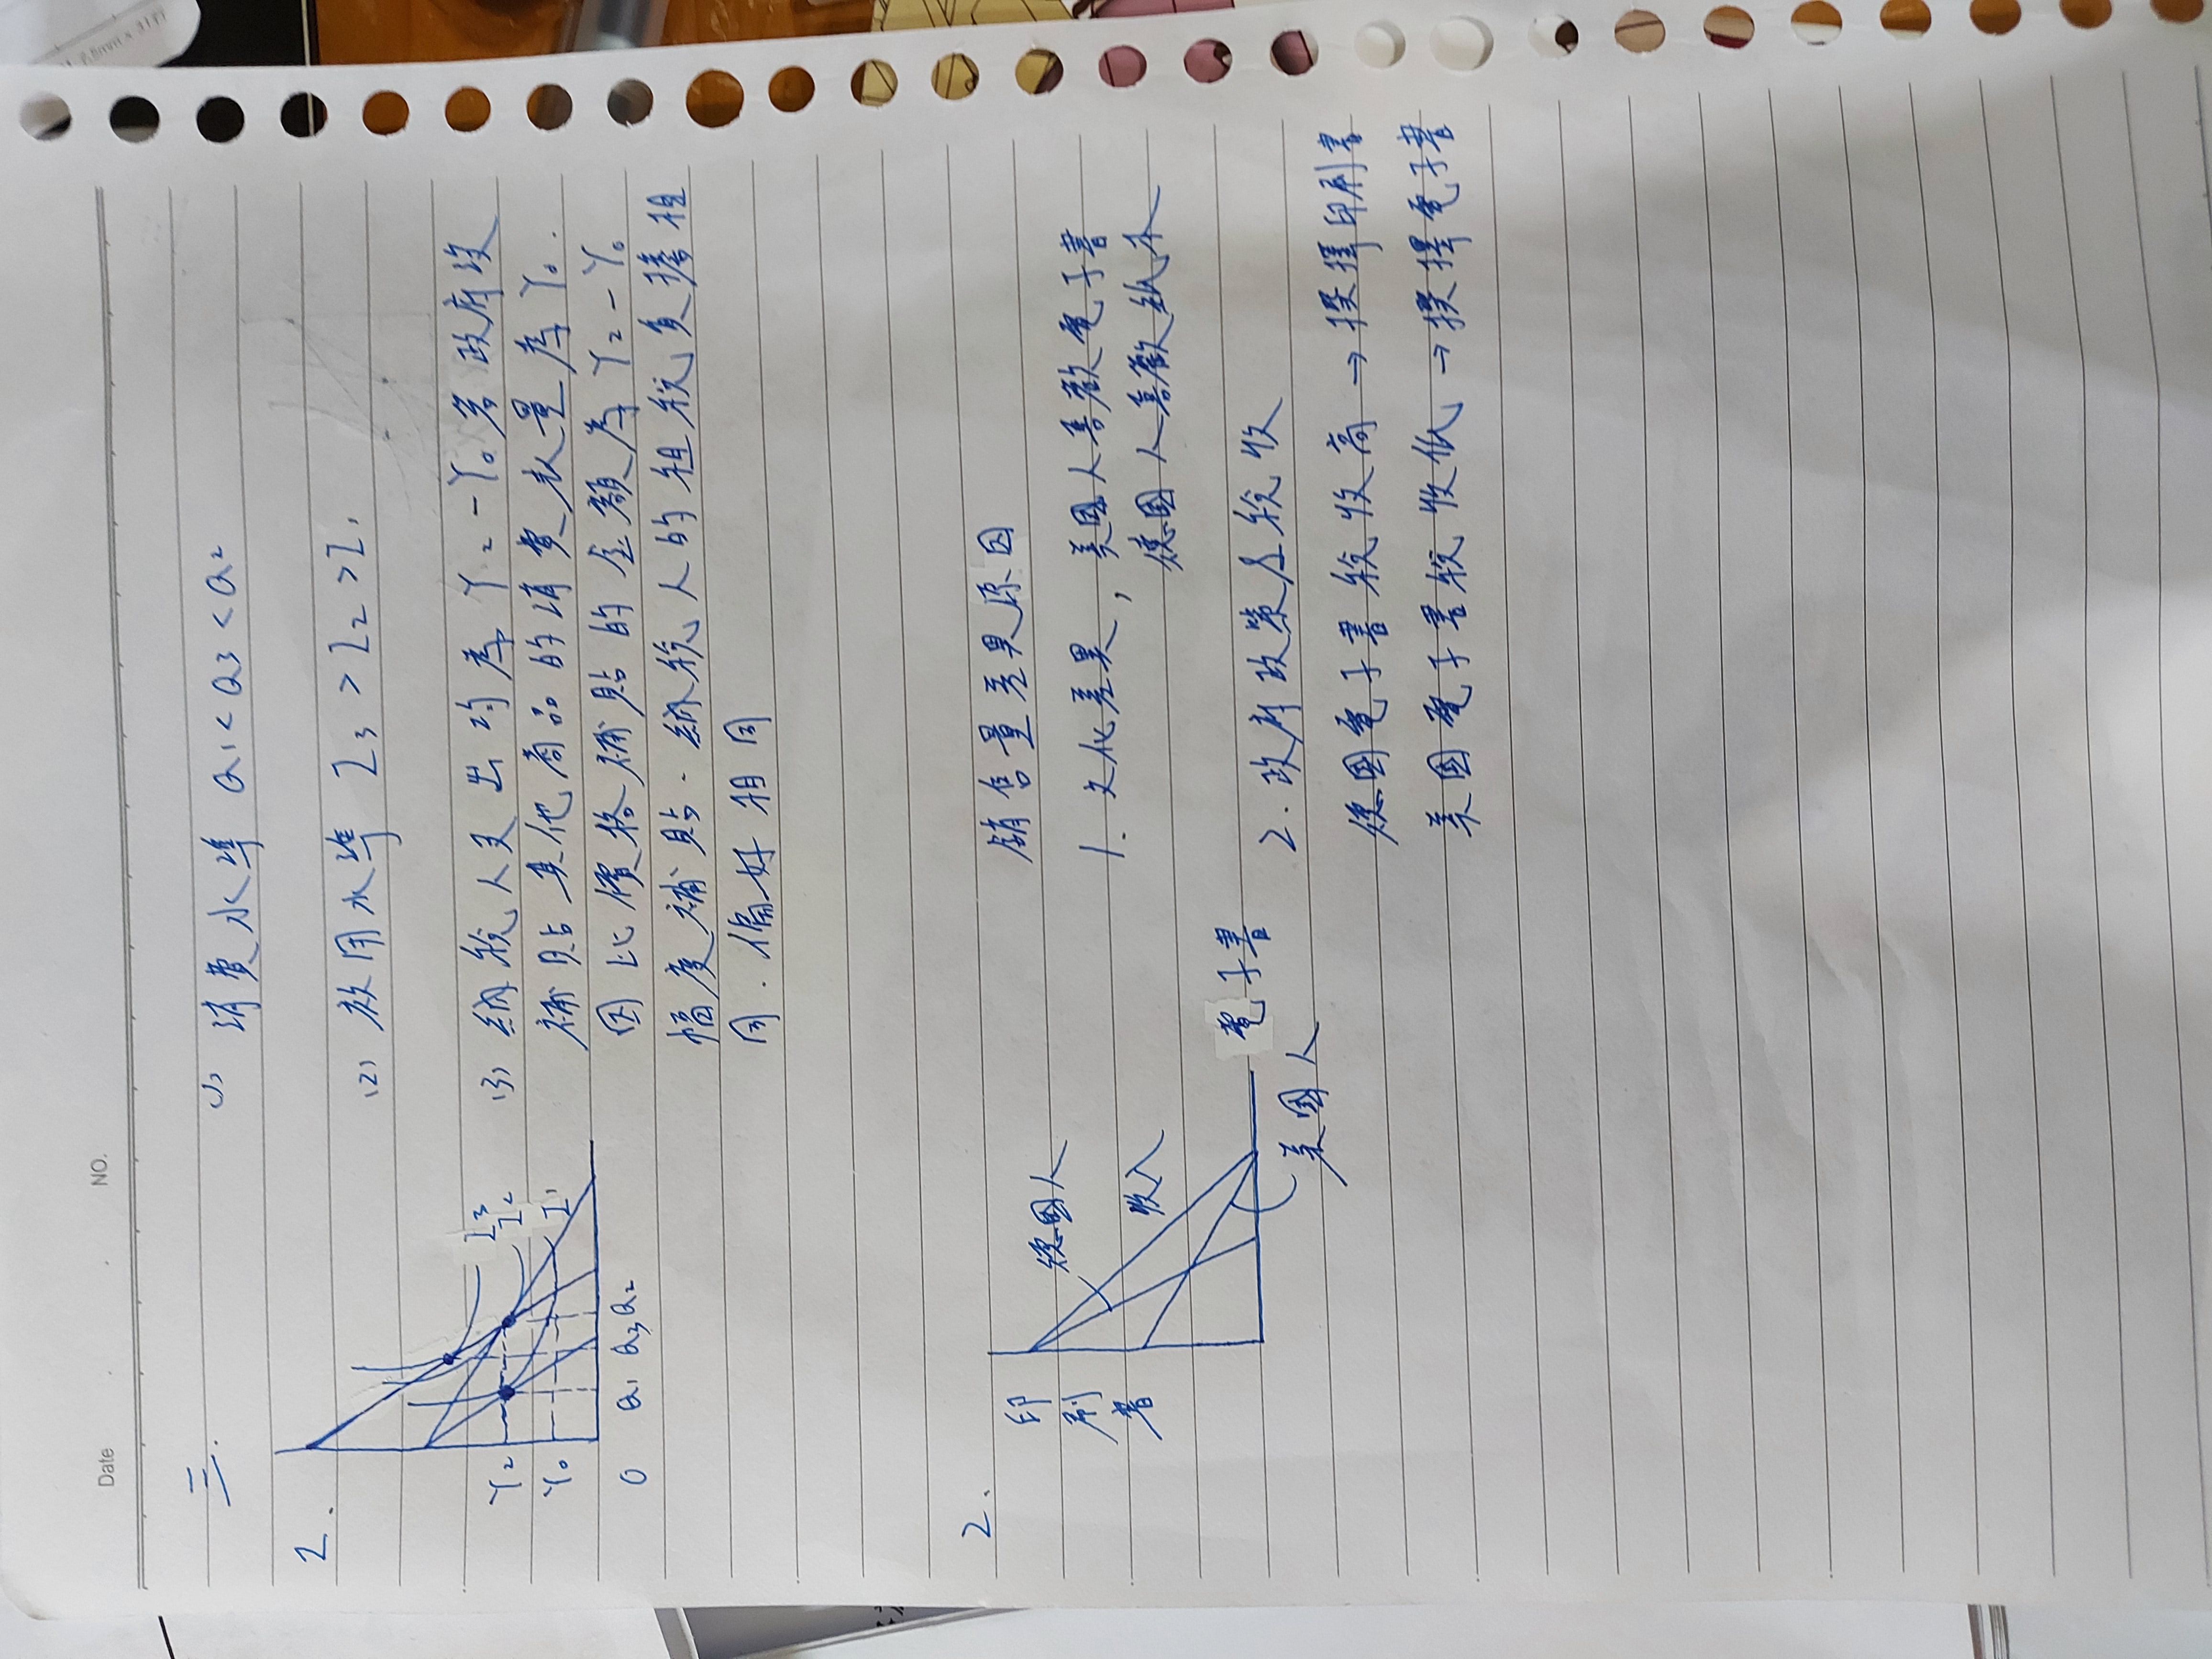 Date . . NO.
三.
(1) 消費水準 Q1 < Q3 < Q2
2.
(2) 效用水準 I3 > I2 > I1
I3
Y2
I2
Y0
I1
O Q1 Q3 Q2
(3) 納稅人支出均為 Y2-Y0 若政府改
補貼其他商品的消費表量為Y0.
因比價格補貼的金額為Y2-Y0
幅度補貼.納稅人的租稅負擔相
同.偏好相同
2.
印刷書
德國人
收入
電子書
美國人
銷售量差異原因
1. 文化差異, 美國人喜歡電子書
德國人喜歡紙本
2. 政府政策及稅收
德國電子書稅收高 → 選擇印刷書
美國電子書稅收低 → 選擇電子書